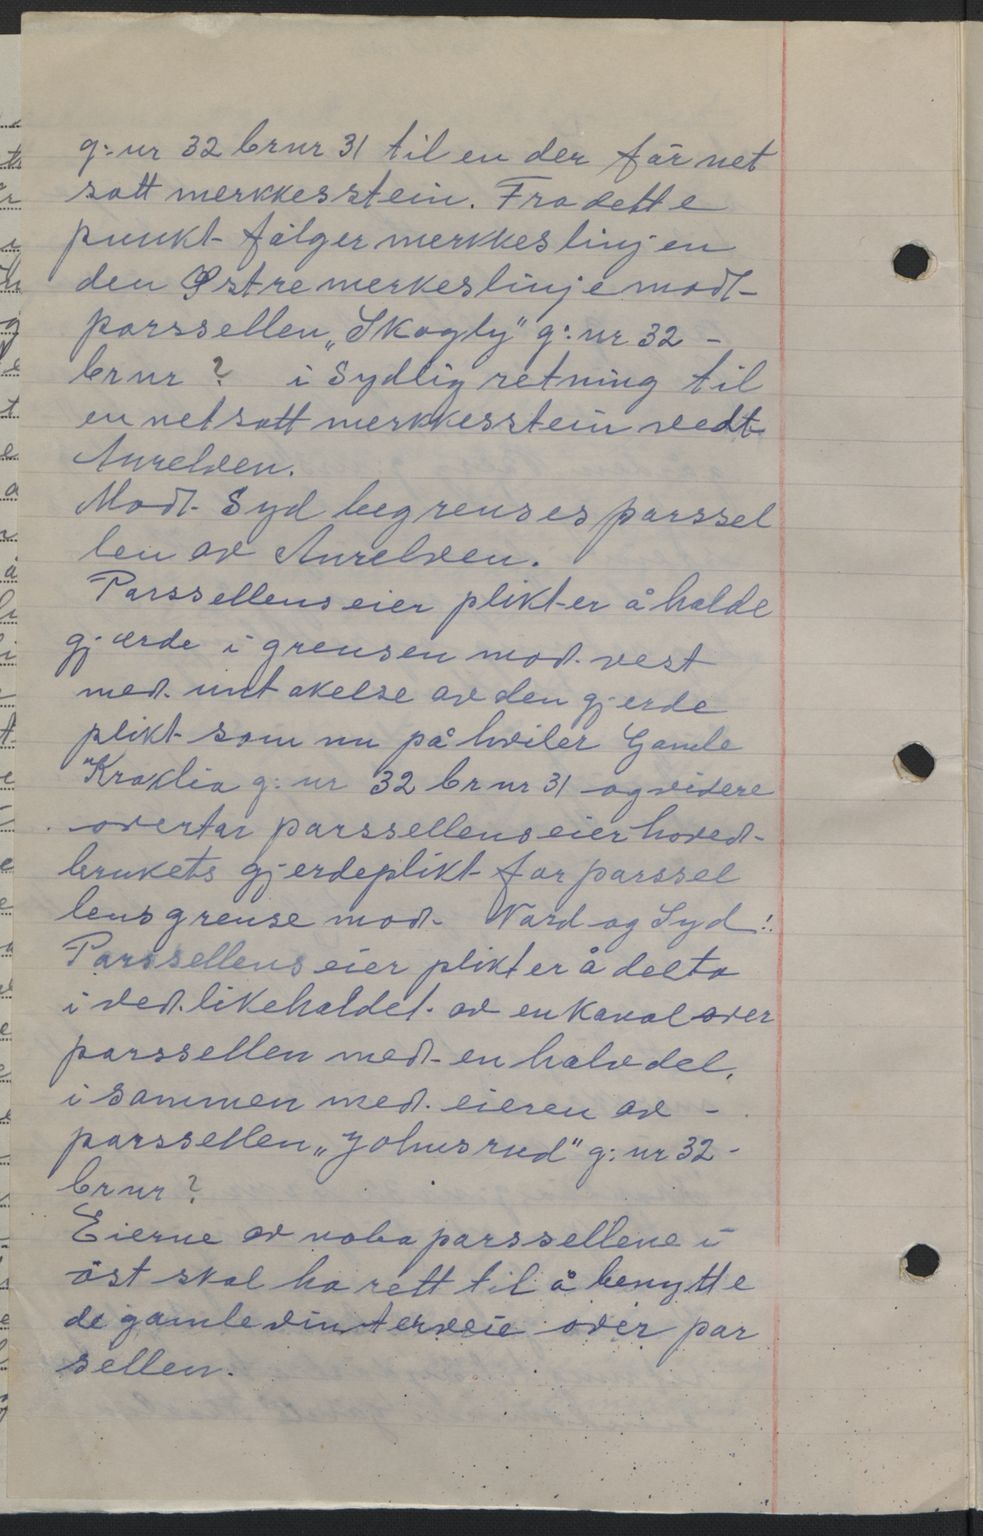 g:nr 32 brnr 31 til en der får net
satt merkkesstein. Fra dette
punkt følger merkkeslinjen
den Østre merkeslinje modt-
parssellen „Skogly" g:nr 32 -
brnr ? i Sydlig retning til
en netsatt merkkesstein vedt
Aurelven.
Modt. Syd begrenses parssel
len av Aurelven.
Parssellens eier plikter å holde
gjærde i grensen mod. vest
med. untakelse av den gjerde
plikt som nu på hviler Gamle
Kraklia g:nr 32 brnr 31 og videre
overtar parssellens eier hoved-
brukets gjerdeplikt for parssel
lens grense mod. Nord og Syd!
Parssellens eier plikter å delta
i ved.likeholdet. av en Kanal over
parssellen med- en halvdel.
i sammen med. eieren av -
parssellen „Johnsrud" g:nr 32 -
brnr ?
Eierne av naboparssellene i
øst skal ha rett til å benytte
de gamle vinterveie over par
sellen.